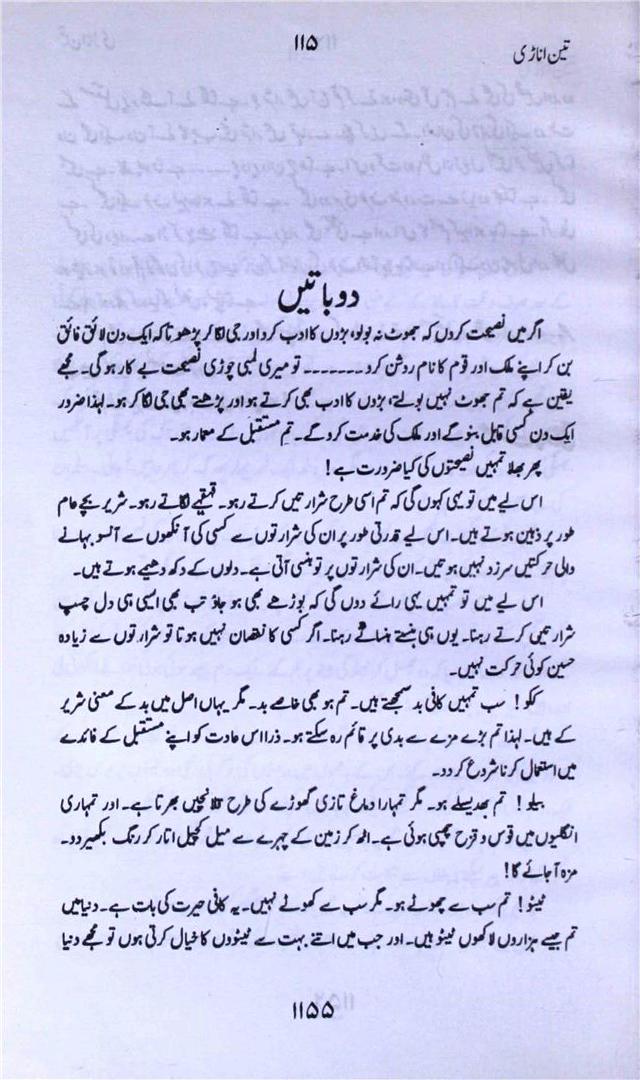 تین اناڑی
۱۱۵
دو باتیں
اگر میں نصیحت کروں کہ جھوٹ نہ بولو، بڑوں کا ادب کرو اور جی لگا کر پڑھو تاکہ ایک دن لائق فائق
بن کر اپنے ملک اور قوم کا نام روشن کرو ۔۔۔۔۔۔۔ تو میری لمبی چوڑی نصیحت بے کار ہو گی۔ مجھے
یقین ہے کہ تم جھوٹ نہیں بولتے، بڑوں کا ادب بھی کرتے ہو اور پڑھتے بھی جی لگا کر ہو۔ لہٰذا ضرور
ایک دن کسی قابل بنو گے اور ملک کی خدمت کرو گے۔ تم مستقبل کے معمار ہو۔
پھر بھلا تمہیں نصیحتوں کی کیا ضرورت ہے!
اس لیے میں تو یہی کہوں گی کہ تم اسی طرح شرارتیں کرتے رہو۔ قہقہے لگاتے رہو۔ شریر بچے عام
طور پر ذہین ہوتے ہیں۔ اس لیے قدرتی طور پر ان کی شرارتوں سے کسی کی آنکھوں سے آنسو بہانے
والی حرکتیں سرزد نہیں ہوتیں۔ ان کی شرارتوں پر تو ہنسی آتی ہے۔ دلوں کے دکھ دھیمے ہوتے ہیں۔
اس لیے میں تو تمہیں یہی رائے دوں گی کہ بوڑھے بھی ہو جاؤ تب بھی ایسی ہی دل چسپ
شرارتیں کرتے رہنا۔ یوں ہی ہنستے ہنساتے رہنا۔ اگر کسی کا نقصان نہیں ہوتا تو شرارتوں سے زیادہ
حسین کوئی حرکت نہیں۔
ککو! سب تمہیں کافی بد سمجھتے ہیں۔ تم ہو بھی خاصے بد۔ مگر یہاں اصل میں بد کے معنی شریر
کے ہیں۔ لہٰذا تم بڑے مزے سے بدی پر قائم رہ سکتے ہو۔ ذرا اس عادت کو اپنے مستقبل کے فائدے
میں استعمال کرنا شروع کر دو۔
بیلو! تم پھدیسلے ہو۔ مگر تمہارا دماغ تازی گھوڑے کی طرح قلانچیں بھرتا ہے۔ اور تمہاری
انگلیوں میں قوس و قزح چھپی ہوئی ہے۔ اٹھ کر زمین کے چہرے سے میل کچیل اتار کر رنگ بکھیر دو۔
مزہ آ جائے گا!
ٹیٹو! تم سب سے چھوٹے ہو۔ مگر سب سے کھوٹے نہیں۔ یہ کافی حیرت کی بات ہے۔ دنیا میں
تم جیسے ہزاروں لاکھوں ٹیٹو ہیں۔ اور جب میں اتنے بہت سے ٹیٹوؤں کا خیال کرتی ہوں تو مجھے دنیا
۱۱۵۵